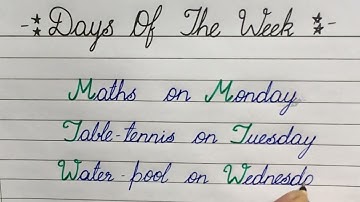 Days Of The Week
Maths on Monday
Table-tennis on Tuesday
Water-pool on Wednesda